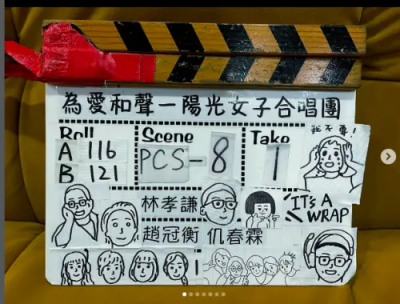 為愛和聲一陽光女子合唱團
Roll Scene Take
A 116 PCS-8 1
B 121
我不要!
林孝謙
IT'S A WRAP
趙冠衡 仉春霖